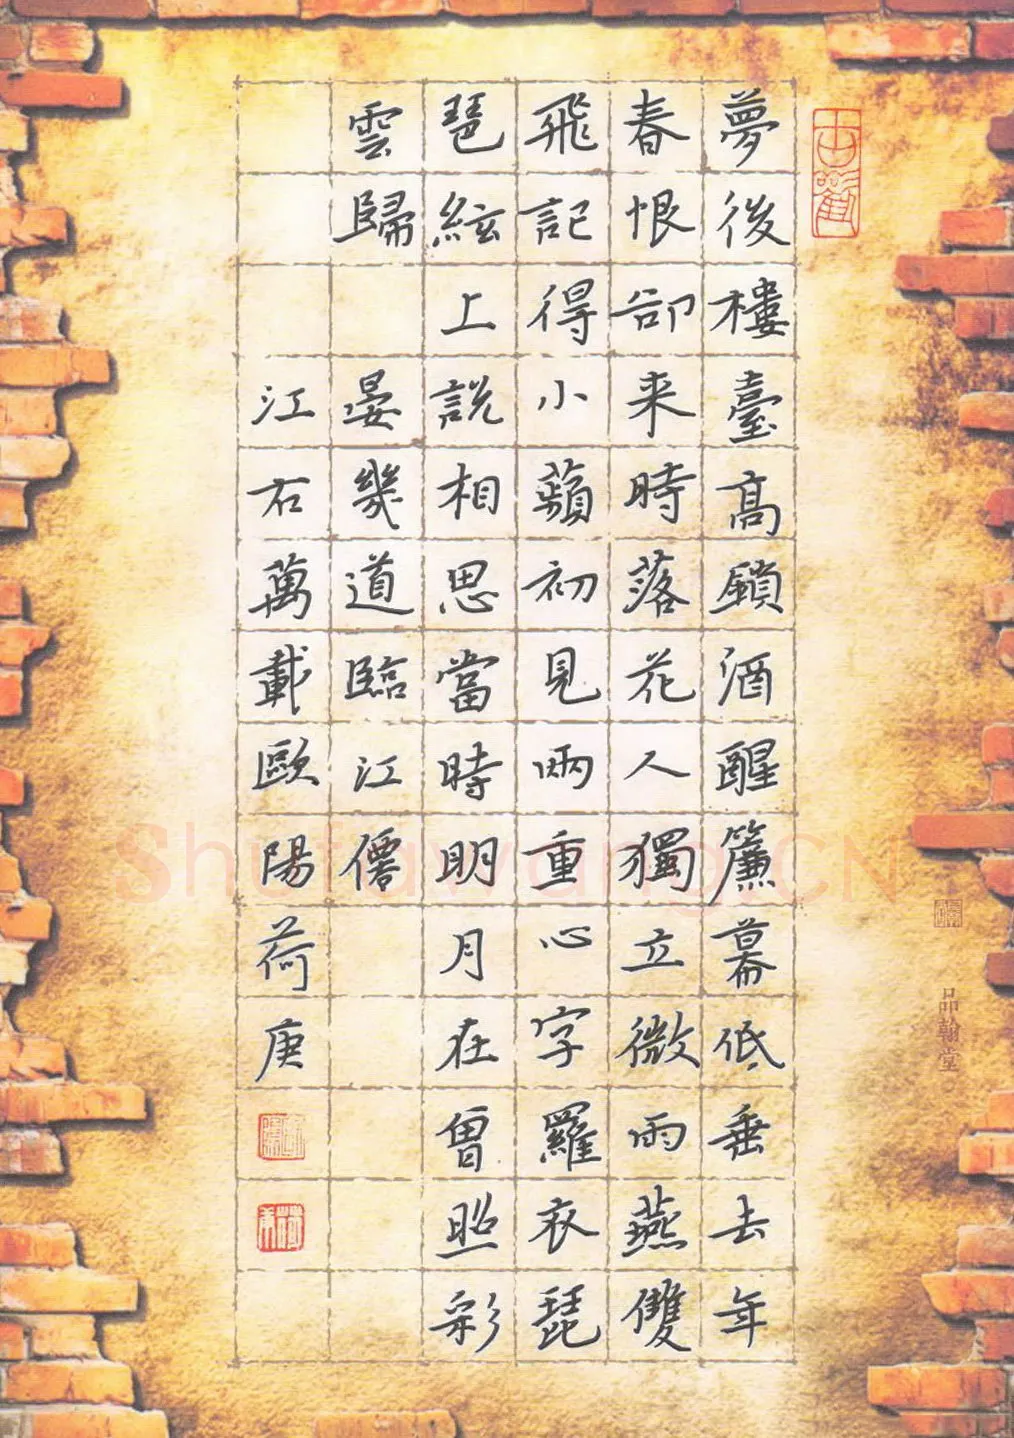 夢後樓臺高鎖酒醒簾幕低垂去年
春恨卻来時落花人獨立微雨燕雙
飛記得小蘋初見兩重心字羅衣琵
琶絃上說相思當時明月在曾照彩
雲歸
晏幾道臨江僊
江右萬載歐陽荷庚
品翰堂
Shufawang.CN